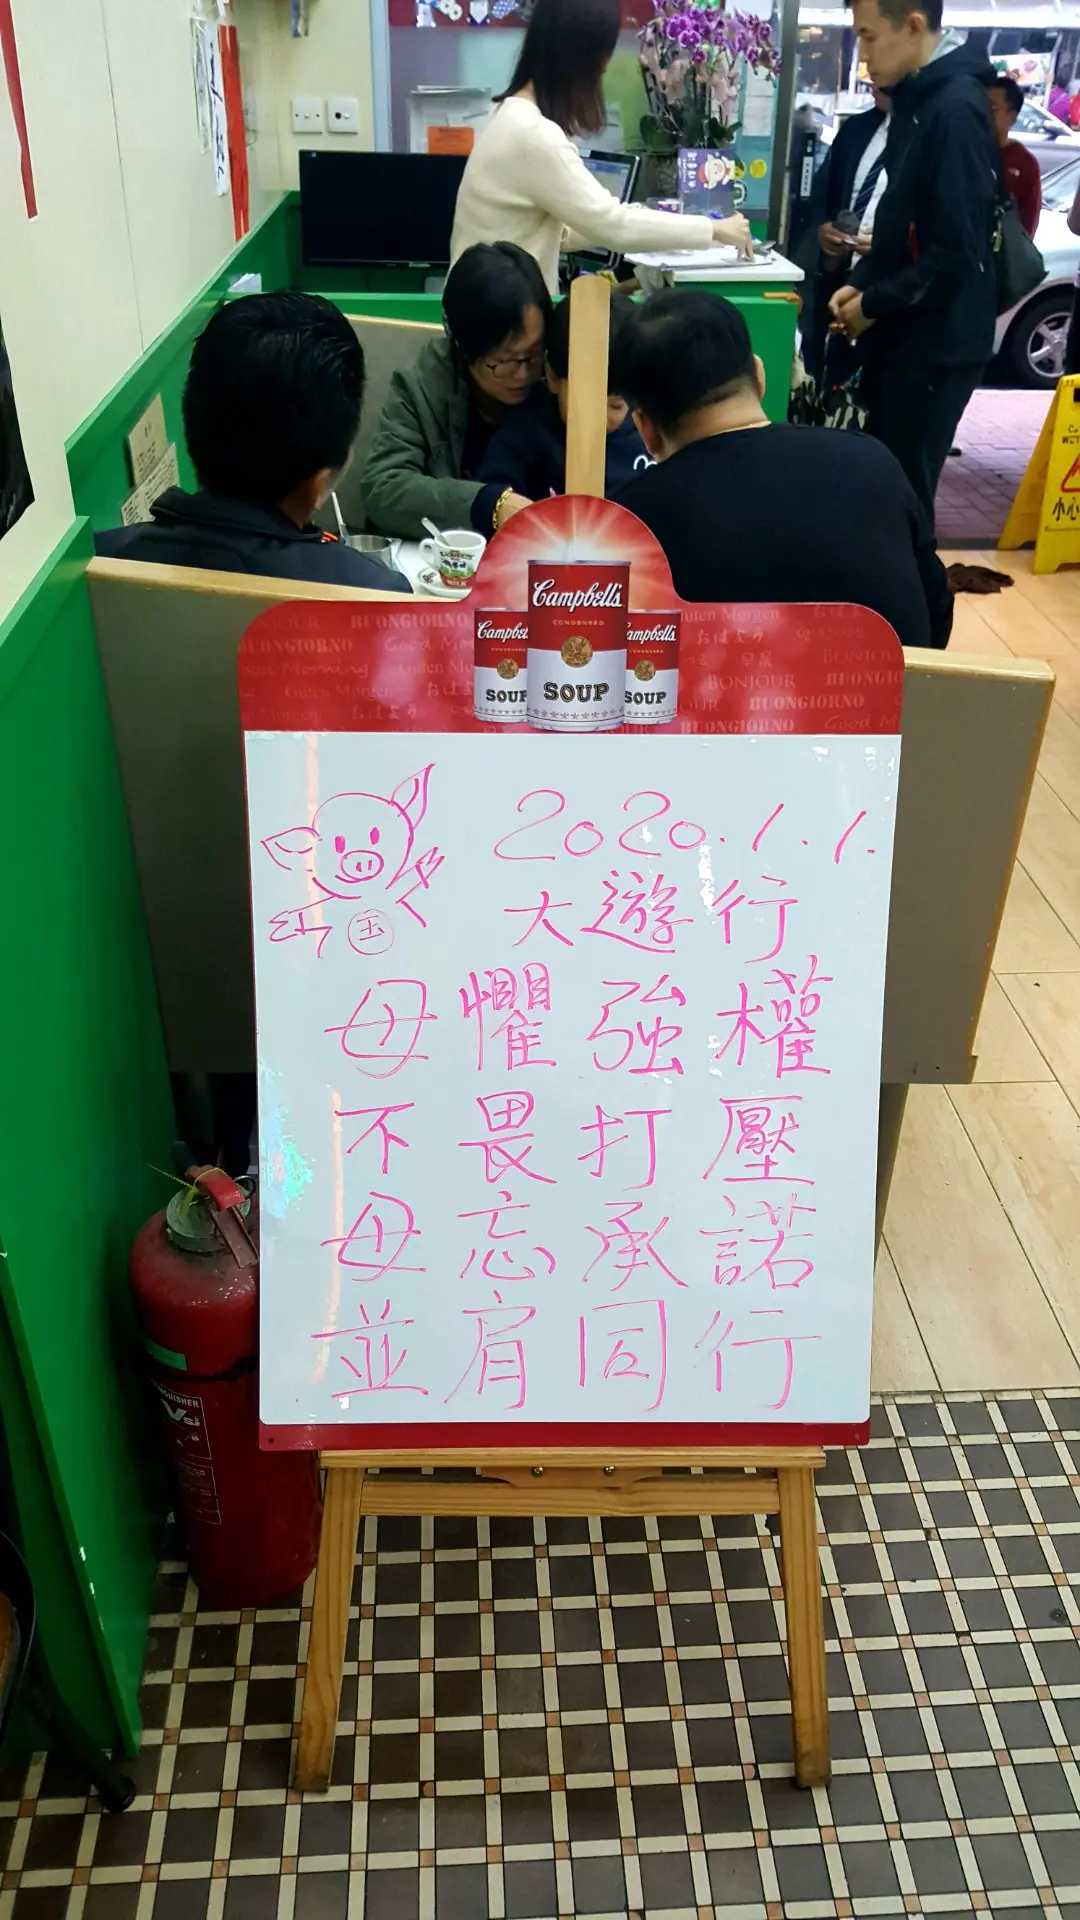 Campbell's
CONDENSED
SOUP
Campbe
SOUP
ampbell's
SOUP
BUONGIORNO
Good Mo
BUONGIORNO
Guten Mo
ood Morning
Guten Morgen
おはよう
Guten Morgen
おはよう
早晨
BONJOU
BONJOUR
BUONG
BUONGIORNO
BUONGIORNO
Good M
2020.1.1.
大遊行
母懼強權
不畏打壓
母忘承諾
並肩同行
小心